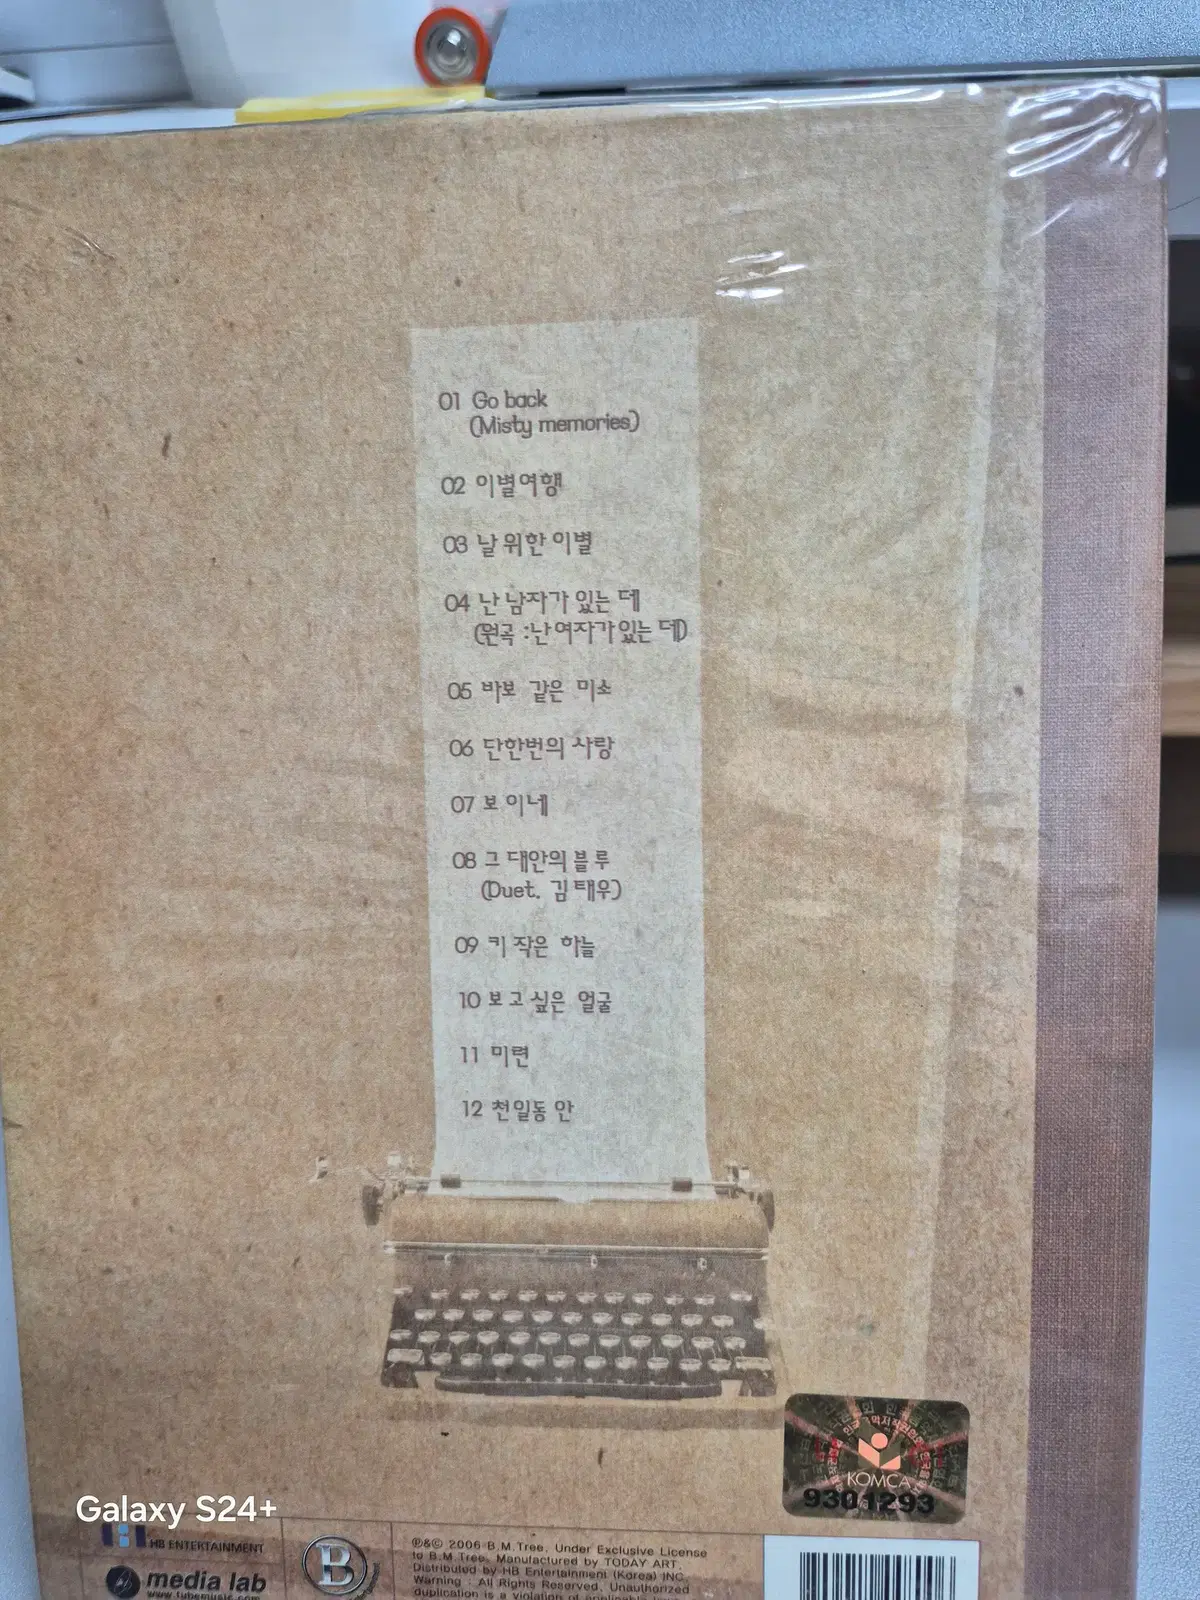 01 Go back
(Misty memories)
02 이별여행
03 날 위한 이별
04 난 남자가 있는 데
(원곡 :난 여자가 있는 데)
05 바보 같은 미소
06 단한번의 사랑
07 보이네
08 그대안의 블루
(Duet. 김태우)
09 키 작은 하늘
10 보고싶은 얼굴
11 미련
12 천일동안
KOMCA
9301293
Galaxy S24+
HB ENTERTAINMENT
media lab
www.tubemusic.com
B
℗&© 2006 B.M.Tree. Under Exclusive License
to B.M.Tree. Manufactured by TODAY ART.
Distributed by HB Entertainment (Korea) INC.
Warning : All Rights Reserved. Unauthorized
duplication is a violation of applicable laws